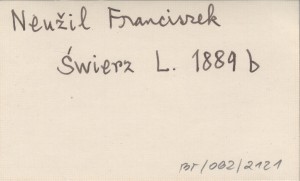 Neužil Franciszek
Świerz L. 1889 b
BT/002/2121